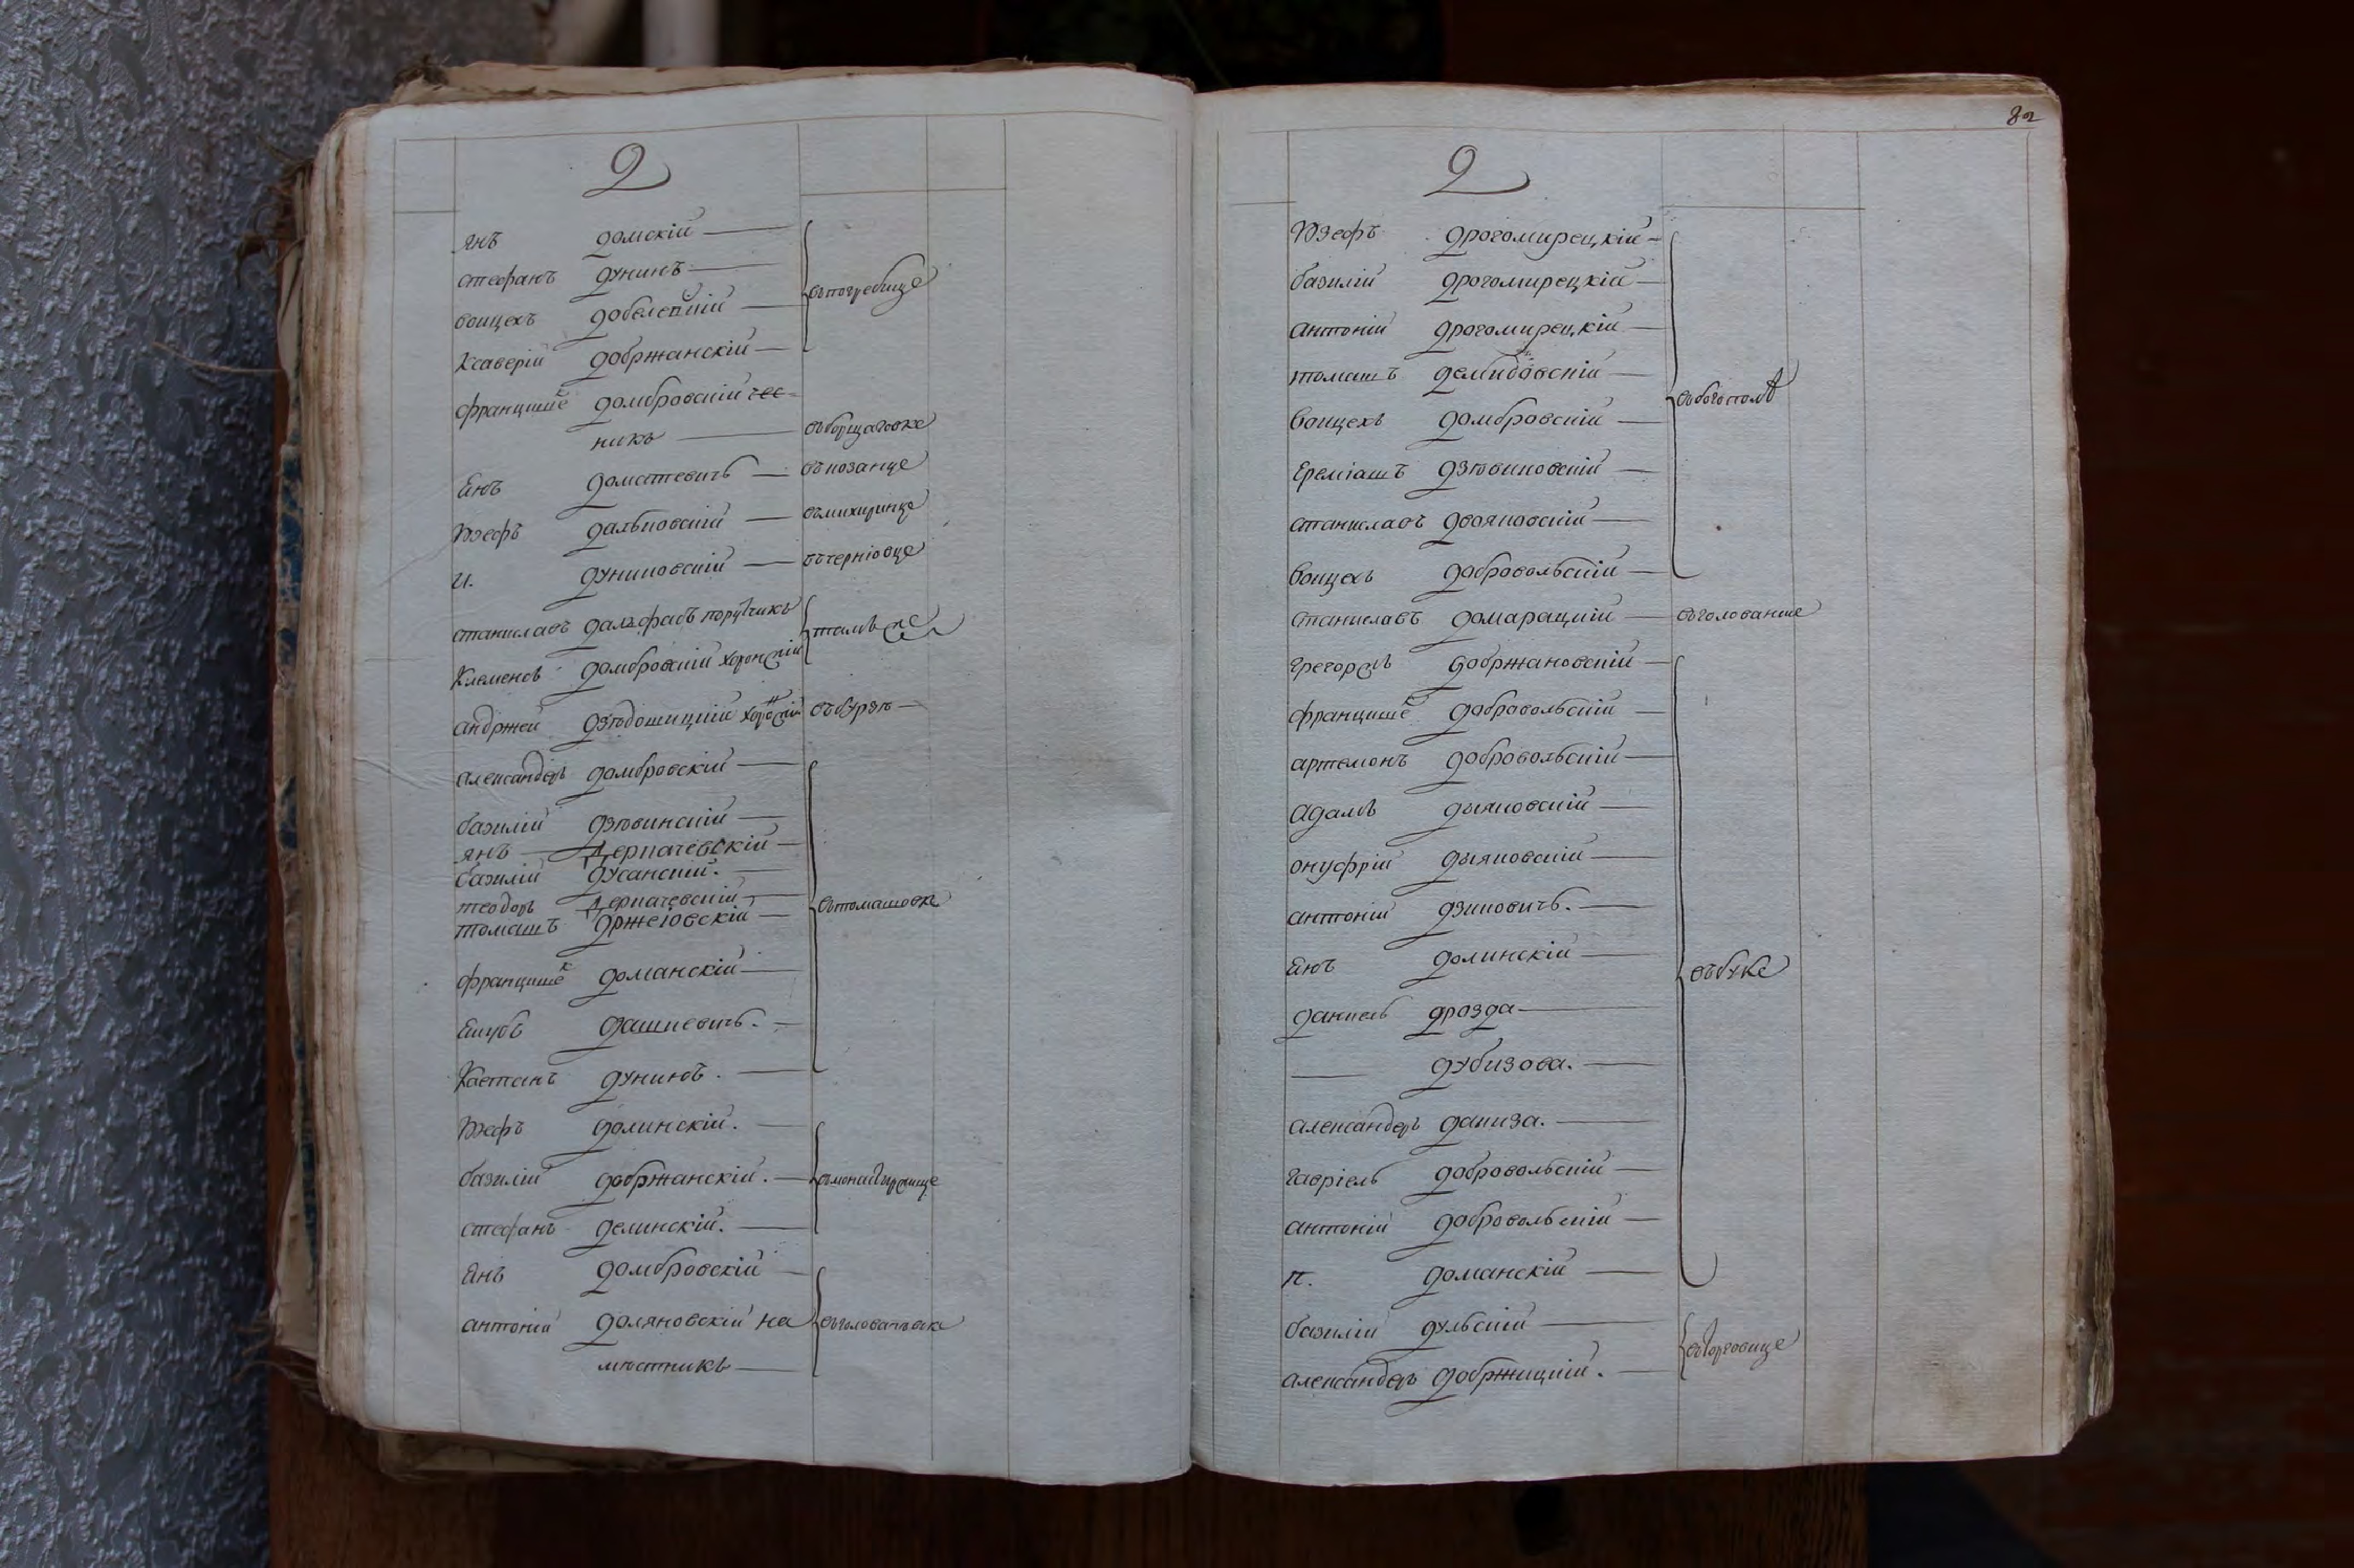 Д
янъ домскій
стефанъ дунинъ
воицехъ добелецкій въ погребище
ксаверій добржанскій
францишекъ домбровскій чес=
никъ въ борщаговке
янъ доматевичъ въ козанце
юзефъ дальковскій въ михиринце
и. дуниковскій въ черніовце
станиславъ дальфасъ порутчикъ
клеменсъ домбровскій хоронжій тамъ же
андржей дзѣдошицкій хоронжій въ бурзѣ
александеръ домбровскій
базилій дзѣвинскій
янъ Дерпачевскій
базилій дусанскій.
теодоръ Дерпачевскій въ томашовке
томашъ држеіовскій
францишекъ доманскій
якубъ дашкевичъ.
каетанъ дунинъ.
юзефъ долинскій.
базилій добржанскій. въ монастырище
стефанъ делинскій.
янъ домбровскій
антоній доляновскій на
мѣстникъ
82
Д
юзефъ дрогомирецкій
базилій дрогомирецкій
антоній дрогомирецкій
томашъ демидовскій
воицехъ домбровскій
ереміашъ дзѣвиновскій
станиславъ двояковскій
воицехъ добровольскій
станиславъ домарацкій
грегоръ добржановскій
францишекъ добровольскій
артемонъ добровольскій
адамъ дыяковскій
онуфрій дыяковскій
антоній дзиковичъ.
янъ долинскій въ буке
даниель дрозда
дубизова.
александеръ даниза.
гавріель добровольскій
антоній добровольскій
п. доманскій
базилій дульскій въ торговице
александеръ добржицкій.